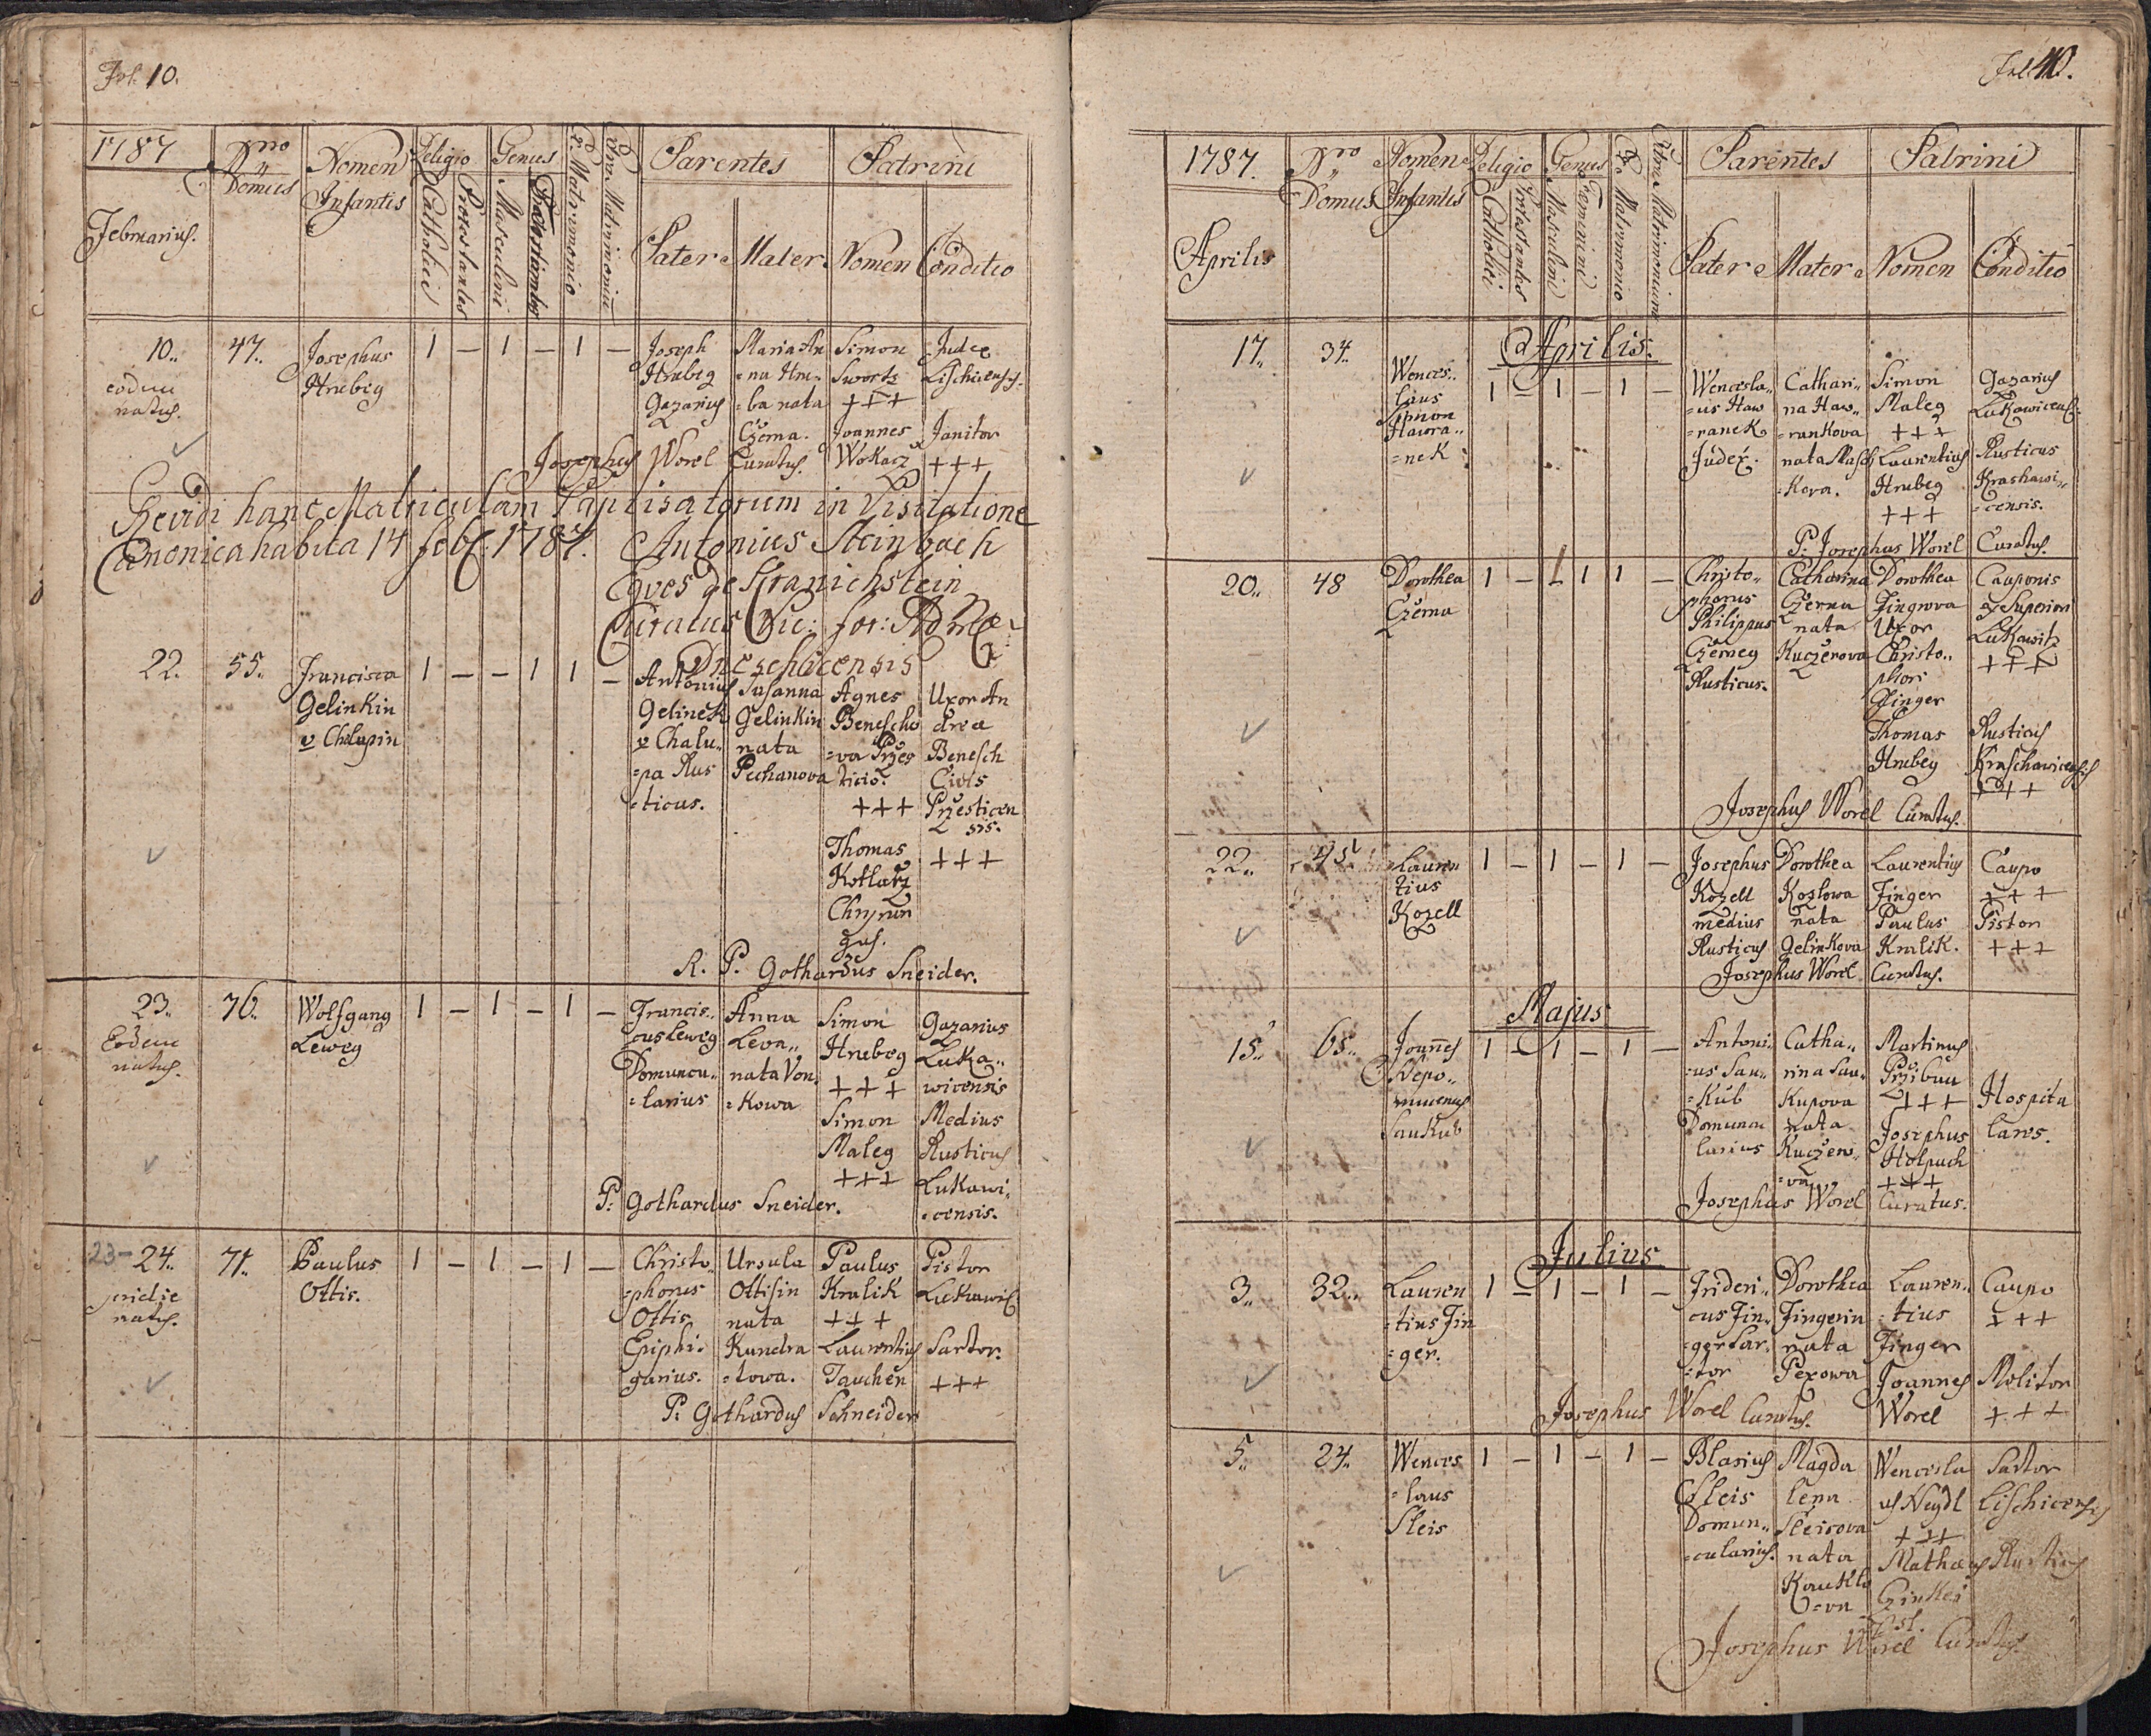 Fol. 10.
1787
Nro
Domus
Nomen
Infantis
Religio
Genus
Parentes
Patrini
Februarius.
Catholici
Protestantes
Masculini
Matrimonio
Pater
Mater
Nomen
Conditio
10..
eodem
natus.
47..
Josephus
Hrubeg
1 — 1 — 1 —
Joseph
Hrubeg
Gazarius
Maria An
=na Hru=
=ba nata
Czerna.
Simon
+++
Joannes
Wokacz
Judex
Lischicensis.
Janitor
+++
Josephus Worel Curatus.
Revidi hanc Matriculam Baptisatorum in Visitatione
Canonica habita 14 feb: 1787. Antonius Steinbach
Eques de Kranichstein
Curatus Vic: for:
22.
55..
Francisca
Gelinkin
v Chalupin
1 — — 1 1 —
Antonius
Gelinek
v Chalu..
=pa Rus
=ticus.
Susanna
Gelinkin
nata
Pechanova
Agnes
Benescho
=va Przes
ticio.
+++
Thomas
Kotlarz
Uxor An
drea
Benesch
Civis
Przesticen
sis.
+++
R. P. Gothardus Sneider.
23..
Eodem
natus.
76..
Wolfgang
Leweg
1 — 1 — 1 —
Francis..
cus Leweg
Domuncu..
=larius
Anna
Leva..
nata Von.
=kowa
Simon
Hrubeg
+++
Simon
Maleg
+++
Gazarius
Luka..
wicensis
Medius
Rusticus
Lukawi.
=censis.
P: Gothardus Sneider.
23 — 24..
pridie
natus.
71..
Paulus
Ottis.
1 — 1 — 1 —
Christo..
=phorus
Ottis
Ephi=
garius.
Ursula
Ottisin
nata
Kundra
=towa.
Paulus
Kralik
+++
Laurentius
Tauchen
Pistor
Lukawic
Sartor.
+++
P: Gothardus Schneider
1787.
Nro
Domus
Nomen
Infantis
Religio
Genus
Parentes
Patrini
Aprilis
Catholici
Protestantes
Masculini
Feminini
Matrimonio
Pater
Mater
Nomen
Conditio
Aprilis.
17..
34..
Wences..
laus
Hawra..
=nek
1 — 1 — 1 —
Wencesla..
=us Haw
=ranek
Judex.
Cathari..
na Haw..
=rankova
nata Masch
=kova.
Simon
Maleg
+++
Laurentius
Hrubeg
+++
Gazarius
Lukawicens:
Rusticus
Krashawi..
=censis.
P: Josephus Worel Curatus.
20..
48
Dorothea
Czerna
1 — 1 1 1 —
Christo..
phorus
Philippus
Czerneg
Rusticus.
Catharina
Czerna
nata
Kuczerova
Dorothea
Fingrova
Uxor
Christo..
phori
Finger
Thomas
Hrubeg
Cauponis
Superiori
Lukawitz
+++
Rusticus
Kraschawicensis
+++
Josephus Worel Curatus.
22..
45
Lauren
tius
Kozell
1 — 1 — 1 —
Josephus
Kozell
medius
Rusticus
Dorothea
Kozlowa
nata
Gelinkova
Laurentius
Finger
Paulus
Kralik.
Caupo
+++
Pistor
+++
Josephus Worel Curatus.
Majus
15..
65..
Joannes
Nepo..
mucenus
Saukub
1 — 1 — 1 —
Antoni..
=us Sau..
=kub
Domuncu
larius
Catha..
rina Sau..
Kupova
nata
Kuczero..
=va
Martinus
Przibau
+++
Josephus
Holpuch
+++
Hospita
lares.
Josephus Worel Curatus.
Julius.
3..
32..
Lauren
=tius Fin
=ger.
1 — 1 — 1 —
Frideri..
cus Fin..
=ger Sar.
=tor
Dorothea
Fingerin
nata
Pexowa
Lauren..
=tius
Finger
Joannes
Worel
Caupo
+++
Molitor
+++
Josephus Worel Curatus.
5..
24..
Wences
=laus
Sleis
1 — 1 — 1 —
Blasius
Sleis
Domun..
=cularius.
Magda
lena
Sleisova
nata
Kaukla
=va
Wencesla
us Neydl
+++
Mathaeus
Sartor
Lischicensis
Rusticus
Josephus Worel Curatus.